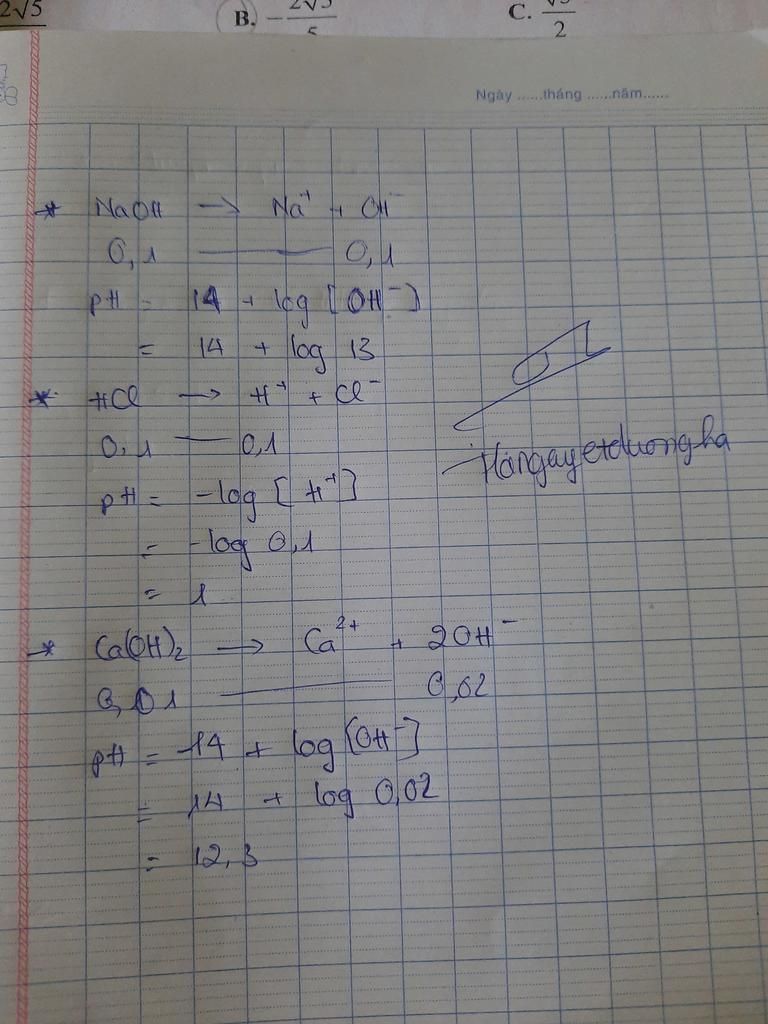 2√5
B. -2√5/5
C. √5/2
Ngày ......tháng ......năm......
* NaOH → Na⁺ + OH⁻
0,1 —— 0,1
pH = 14 + log [OH⁻]
= 14 + log 13
* HCl → H⁺ + Cl⁻
0,1 — 0,1
pH = -log [H⁺]
= -log 0,1
= 1
* Ca(OH)₂ → Ca²⁺ + 2OH⁻
0,01 —— 0,02
pH = 14 + log [OH⁻]
= 14 + log 0,02
= 12,3